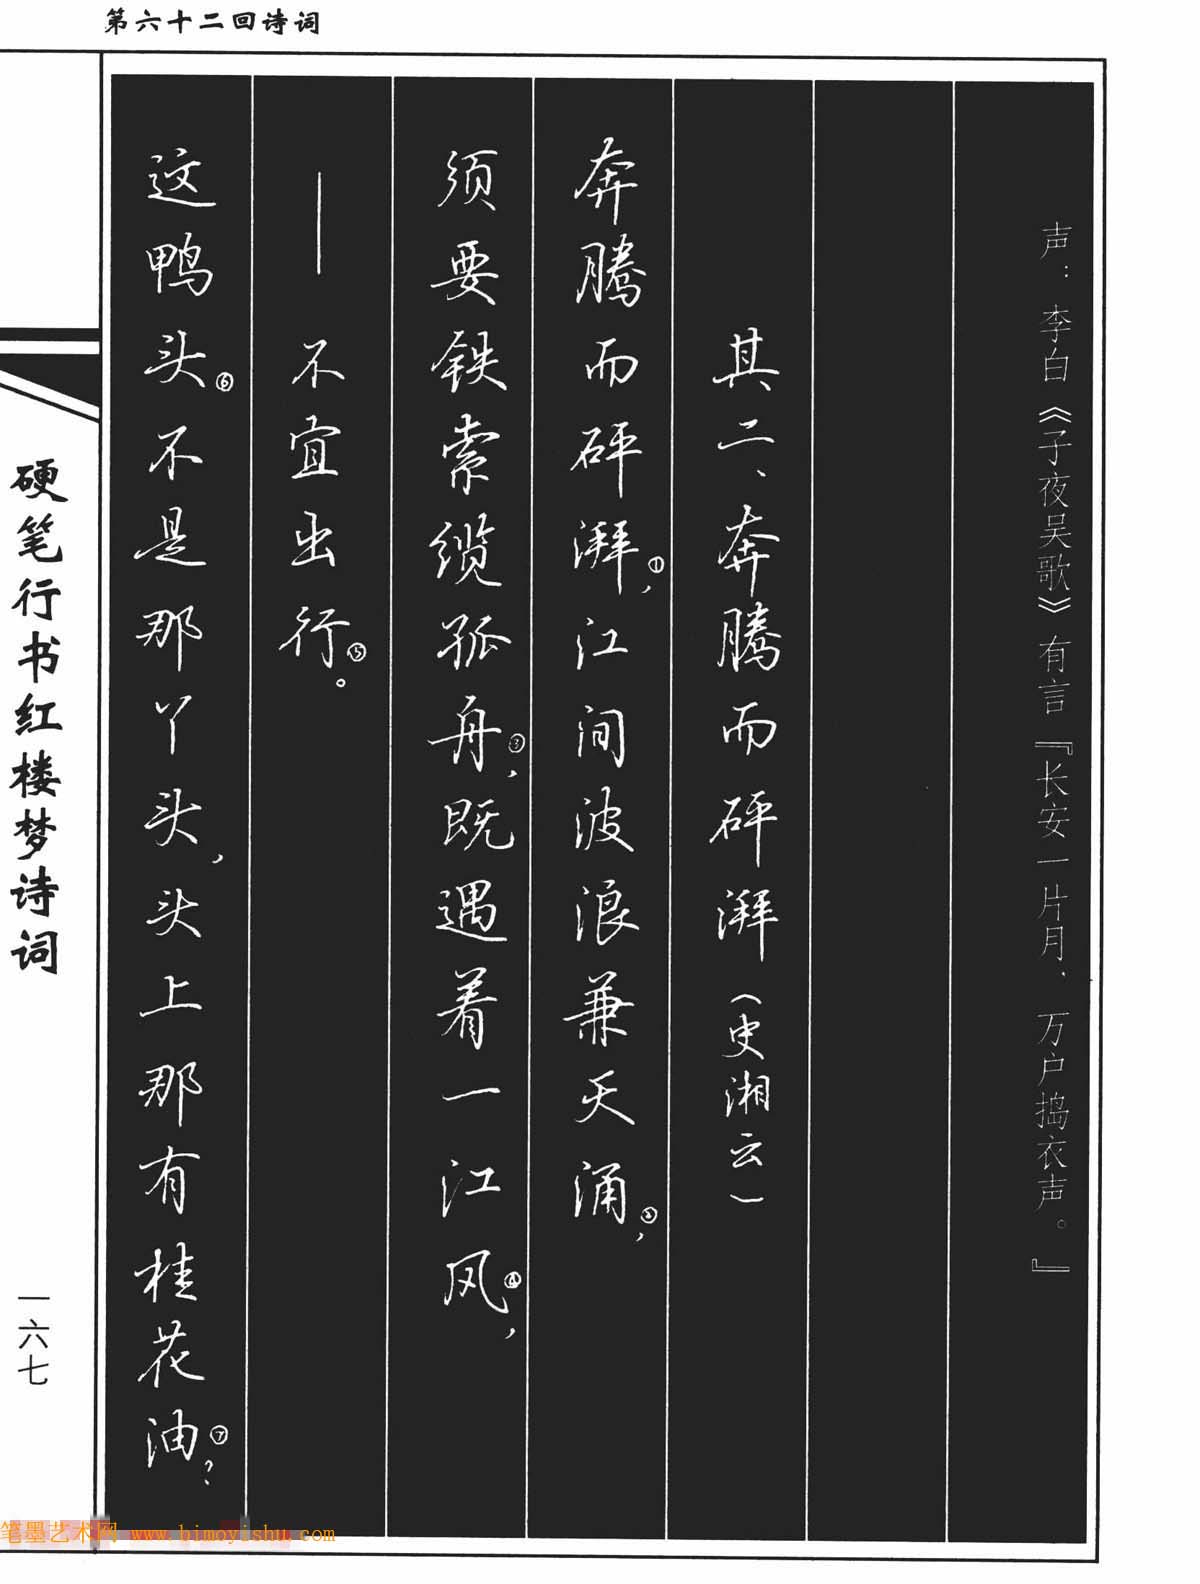 第六十二回诗词
声：李白《子夜吴歌》有言『长安一片月，万户捣衣声。』
其二、奔腾而砰湃（史湘云）
奔腾而砰湃①，江间波浪兼天涌②，
须要铁索缆孤舟③，既遇着一江风④，
——不宜出行⑤。
这鸭头⑥不是那丫头，头上那有桂花油⑦？
硬笔行书红楼梦诗词
一六七
笔墨艺术网 www.bimoyishu.com